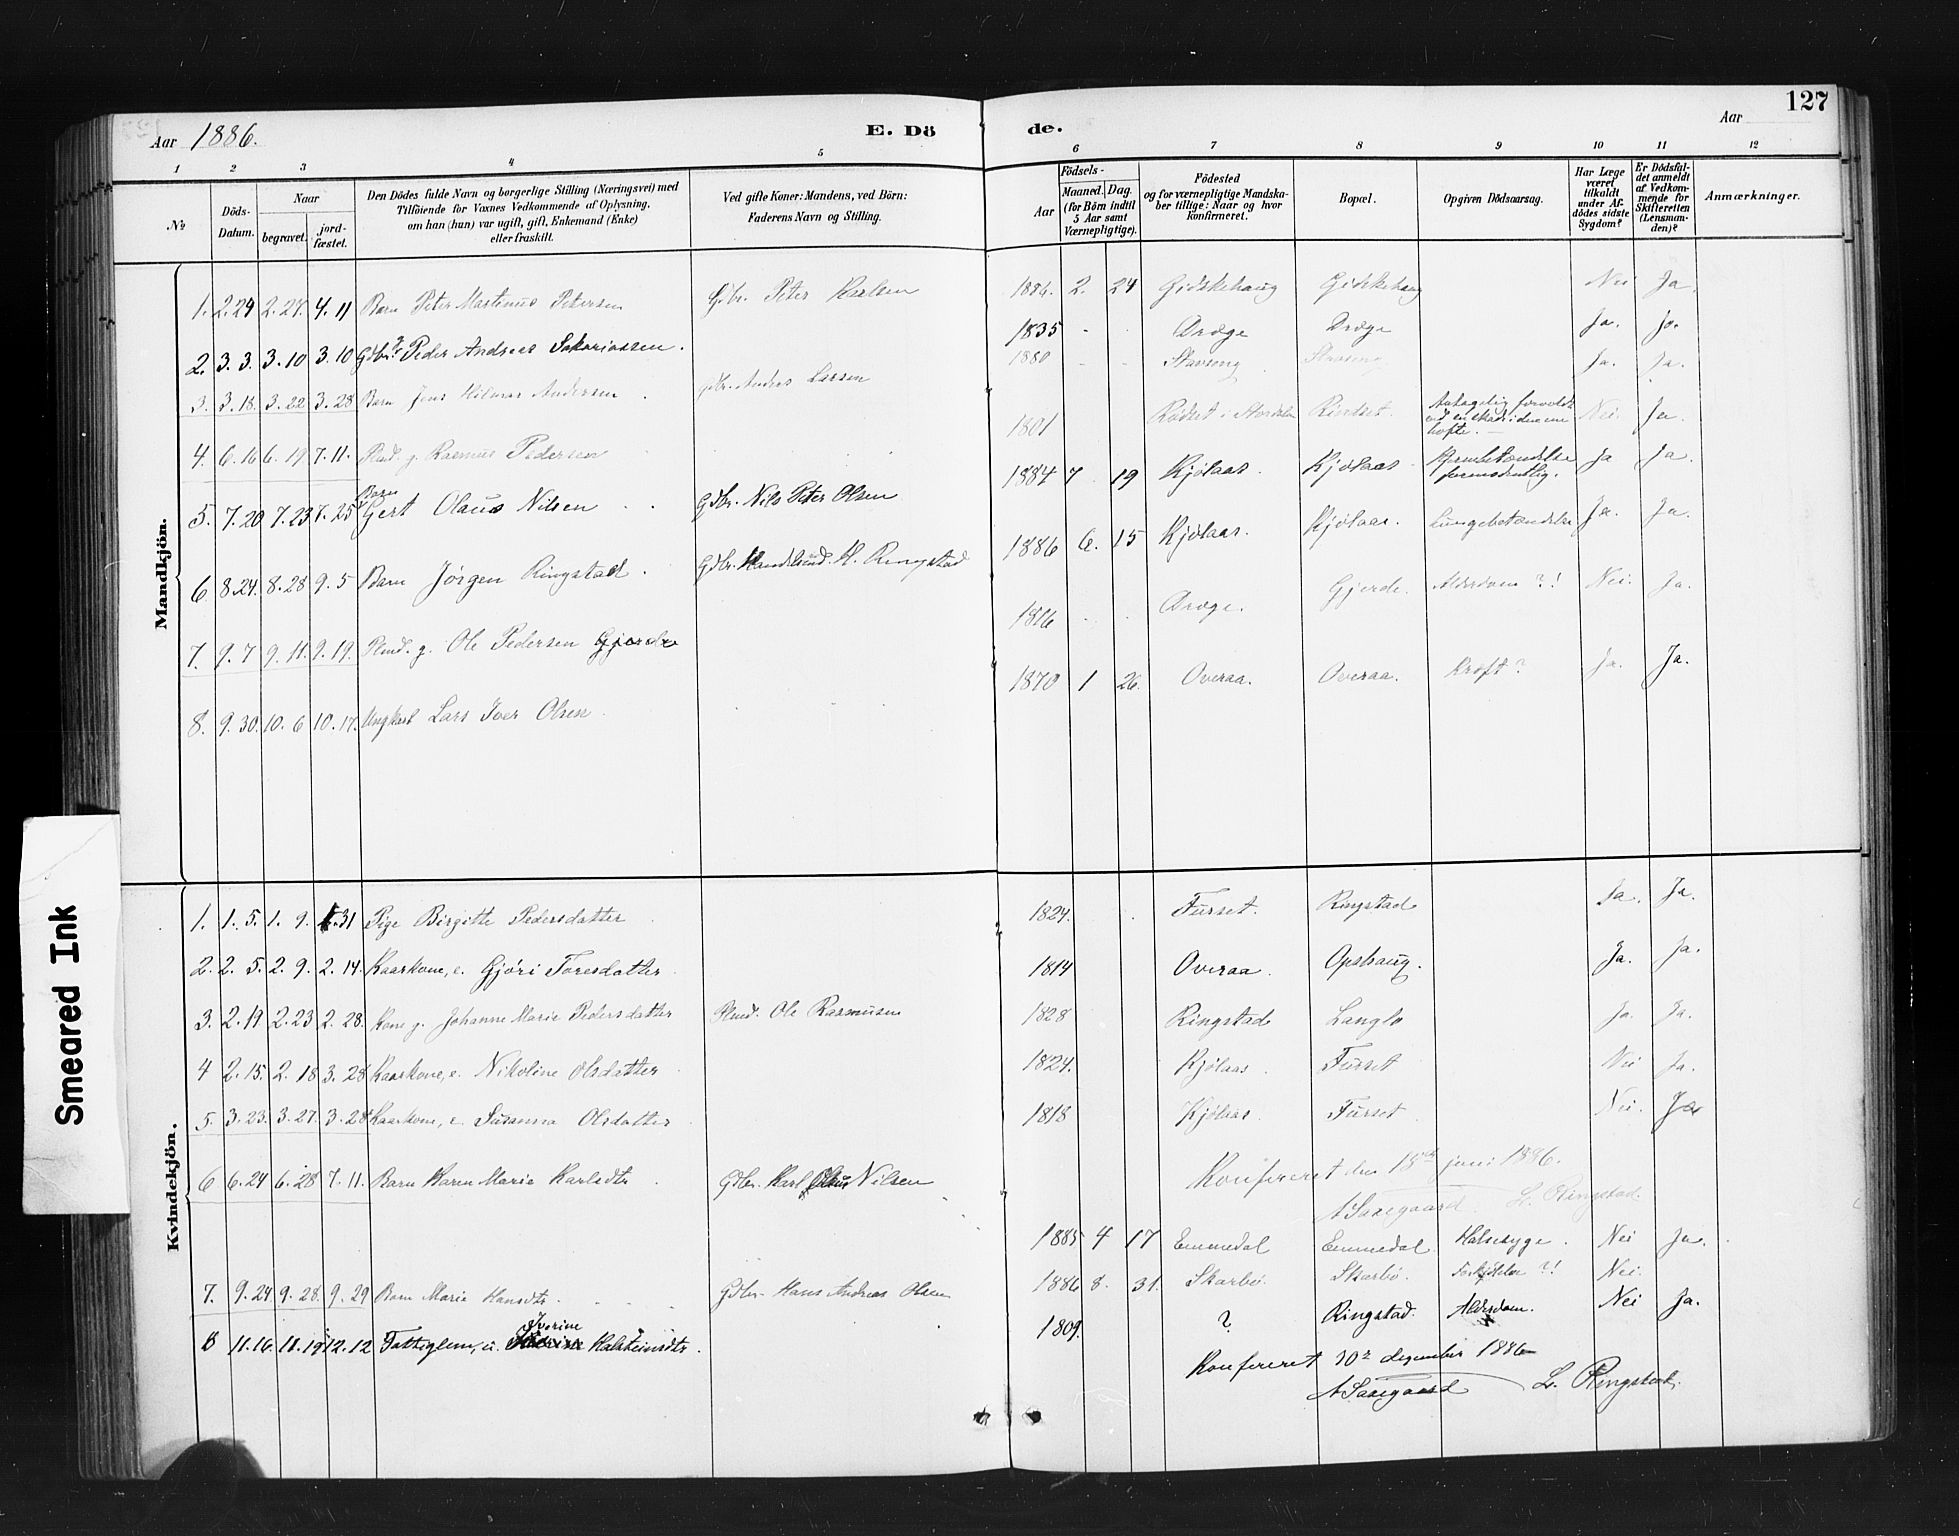 Aar 1886.
E. Dö de.
Aar
127
1 2 3 4 5 6 7 8 9 10 11 12
№
Döds-Datum.
Naar
begravet.
jord-fæstet.
Den Dödes fulde Navn og borgerlige Stilling (Næringsvei) med
Tilföiende for Voxnes Vedkommende af Oplysning,
om han (hun) var ugift, gift, Enkemand (Enke)
eller fraskilt.
Ved gifte Koner: Mandens, ved Börn:
Faderens Navn og Stilling.
Födsels-
Aar
Maaned. Dag.
(for Börn indtil
5 Aar samt
Værnepligtige).
Födested
og for værnepligtige Mandska-
ber tillige: Naar og hvor
konfirmeret.
Bopæl.
Opgiven Dödsaarsag.
Har Læge
været
tilkaldt
under Af-
dödes sidste
Sygdom?
Er Dödsfal-
det anmeldt
af Vedkom-
mende for
Skifteretten
(Lensman-
den)?
Anmærkninger.
Mandkjön.
1. 2.24 2.27. 4.11 Barn Peter Martinus Petersen Gdbr. Peter Karlsen 1886. 2. 24 Gidskehaug Gidskehaug Nei Ja
2. 3.3. 3.10 3.10 Gdbr. Peder Andreas Sakariassen. 1835 - Drøge Drøge Ja. Ja.
3. 3.18. 3.22 3.28 Barn Jens Hilmar Andersen Gdbr. Anders Larsen 1880 - - Stavseng Stavseng Ja. Ja.
4. 6.16 6.19 7.11. g. Rasmus Pedersen 1801 i Rindset. Antagelig forvoldt
ved en skade i den ene
hofte. Nei. Ja.
5. 7.20 7.23 7.25 Barn
Gert Olaus Nilsen Gdbr. Nils Peter Olsen 1884 7 19 Kjølaas. Kjølaas
formodentlig. Ja Ja.
6. 8.24. 8.28 9.5 Barn Jørgen Ringstad. Gdbr. H. Ringstad 1886 6. 15 Kjølaas. Kjølaas. Lungebetændelse Ja. Ja.
7. 9.7 9.11. 9.19. g. Ole Pedersen Gjerde 1816 - - Drøge. Gjerde. Alderdom?! Nei. Ja.
8. 9.30. 10.6 10.17. Ungkarl Lars Iver Olsen 1870 1 26. Overaa. Overaa. Kræft? Ja. Ja.
Kvindekjön.
1. 1.5. 1.9. 1.31 Pige Birgitte Pedersdatter 1824. Furset. Ringstad Ja. Ja.
2. 2.5. 2.9. 2.14. Kaarkone, e. Gjøri Toresdatter 1814 Overaa. Opshaug. Ja. Ja.
3. 2.19 2.23 2.28. Kone g. Johanne Marie Pedersdatter Ole Rasmusen 1828 Ringstad Langlo Ja. Ja.
4 2.15. 2.18 3.28 Kaarkone, e. Nikoline Olsdatter 1824. Kjølaas. Furset Nei Ja.
5. 3.23. 3.27. 3.28 Kaarkone, e. Susanna Olsdatter 1818 Kjølaas. Furset Nei. Ja
Konfereret den 18de juni 1886.
A Saxegaard L. Ringstad.
6 6.24 6.28 7.11. Barn Karen Marie Karlsdtr Gdbr. Karl Nilsen 1885 4 17 Emmedal Emmedal. Halssyge. Nei Ja.
7. 9.24 9.28. 9.29 Barn Marie Hansdtr. Gdbr. Hans Andreas Olsen 1886 8. 31. Skarbø. Skarbø. ?! Nei.
8 11.16. 11.19 12.12 Fattiglem, u. Iverine Halsteinsdtr. 1809. ? Ringstad. Alderdom. Nei Ja.
Konfereret 30te desember 1886
A Saxegaard L. Ringstad.
Smeared Ink